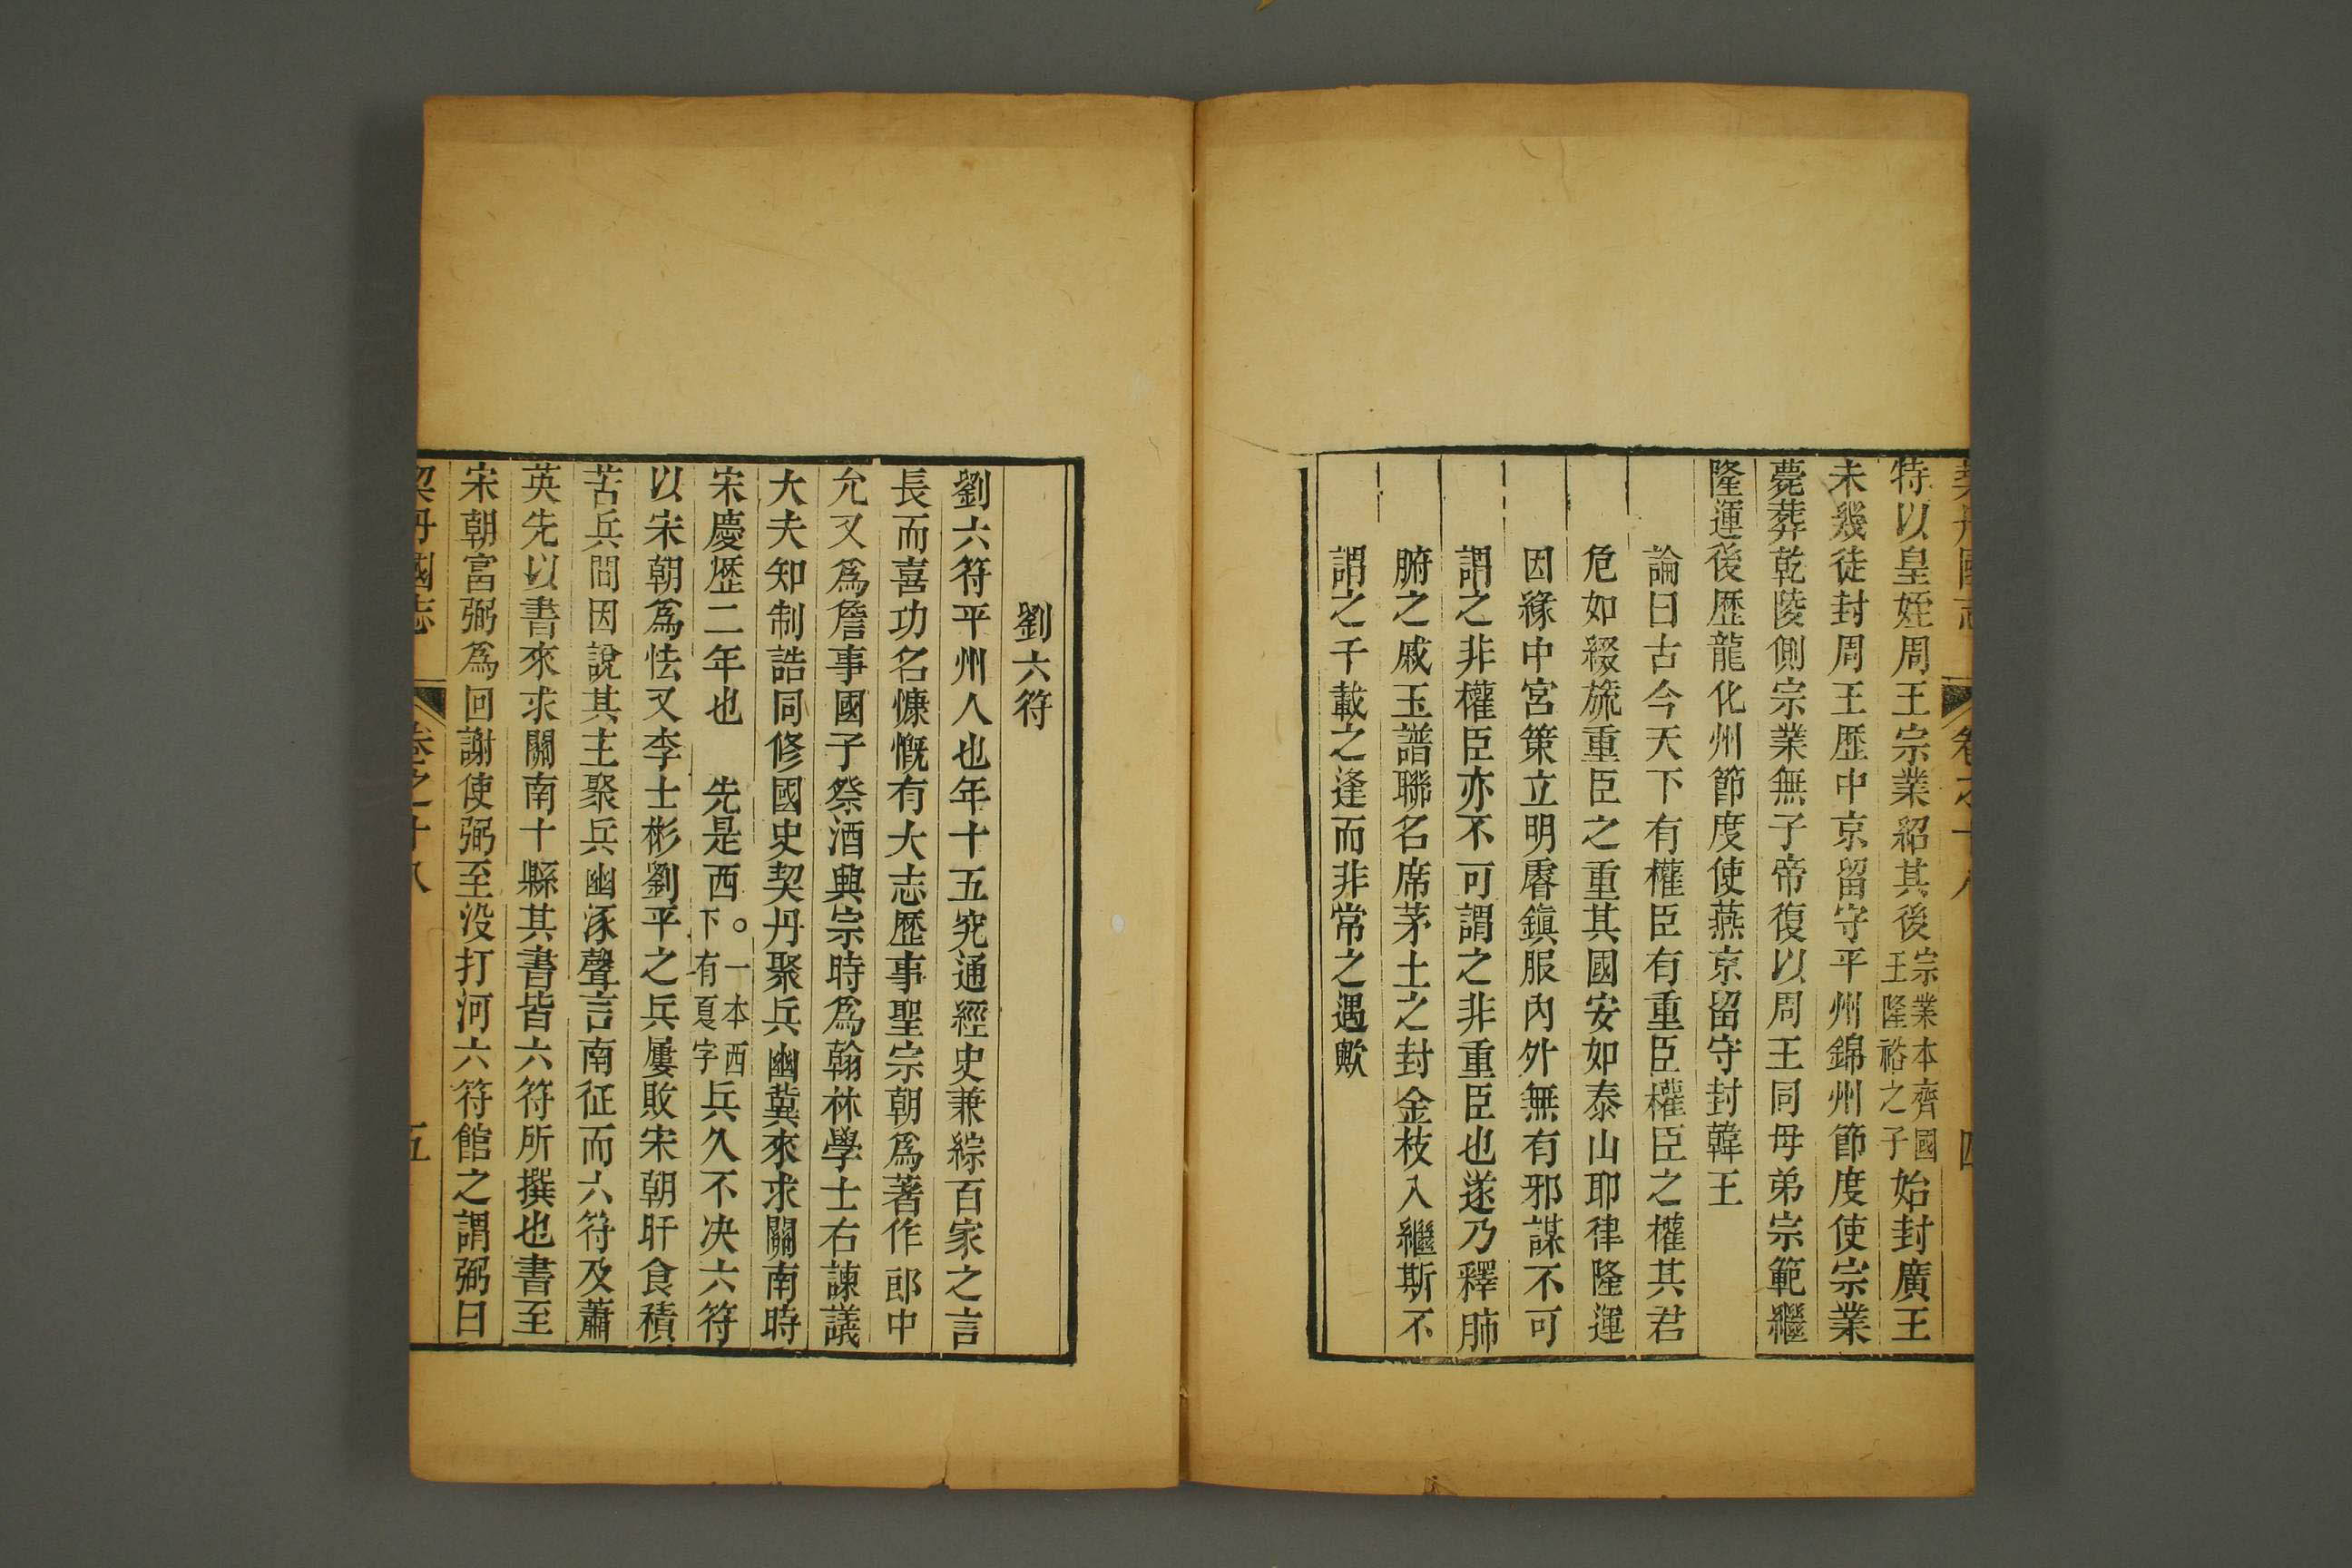 契丹國志 卷之十八 四
特以皇姪周王宗業紹其後宗業本齊國王隆裕之子始封廣王
未幾徒封周王歷中京留守平州錦州節度使宗業
薨葬乾陵側宗業無子帝復以周王同母弟宗範繼
隆運後歷龍化州節度使燕京留守封韓王
論曰古今天下有權臣有重臣權臣之權其君
危如綴旒重臣之重其國安如泰山耶律隆運
因緣中宮策立明𢊍鎮服內外無有邪謀不可
謂之非權臣亦不可謂之非重臣也遂乃釋肺
腑之戚玉譜聯名席茅土之封金枝入繼斯不
謂之千載之逢而非常之遇歟
劉六符
劉六符平州人也年十五究通經史兼綜百家之言
長而喜功名慷慨有大志歷事聖宗朝爲著作郎中
允又爲詹事國子祭酒興宗時爲翰林學士右諫議
大夫知制誥同修國史契丹聚兵幽冀來求關南時
宋慶歷二年也 先是西。一本西下有夏字兵久不決六符
以宋朝爲怯又李士彬劉平之兵屢敗宋朝旰食積
苦兵間因說其主聚兵幽涿聲言南征而六符及蕭
英先以書來求關南十縣其書皆六符所撰也書至
宋朝富弼爲回謝使弼至没打河六符館之謂弼曰
契丹國志 卷之十八 五